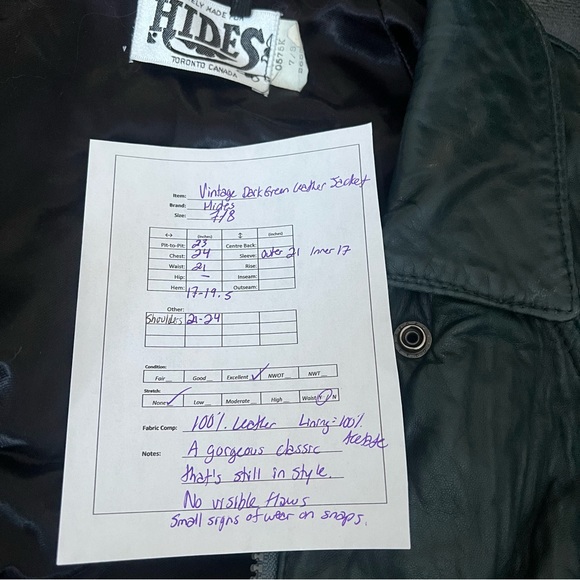 ELY MADE FOR
HIDES
TORONTO CANADA
0575K
7/8
Item: Vintage Dark Green Leather Jacket
Brand: Hides
Size: 7/8
(Inches) (Inches)
Pit-to-Pit: 23 Centre Back:
Chest: 24 Sleeve: Outer 21 Inner 17
Waist: 21 Rise:
Hip: - Inseam:
Hem: 17-19.5 Outseam:
Other:
Shoulders 21-24
Condition:
Fair__ Good__ Excellent ✓ NWOT__ NWT__
Stretch:
None ✓ Low__ Moderate__ High__ Waist Y / N
Fabric Comp: 100% Leather Lining = 100% Acetate
Notes: A gorgeous classic
that's still in style.
No visible flaws
Small signs of wear on snaps.